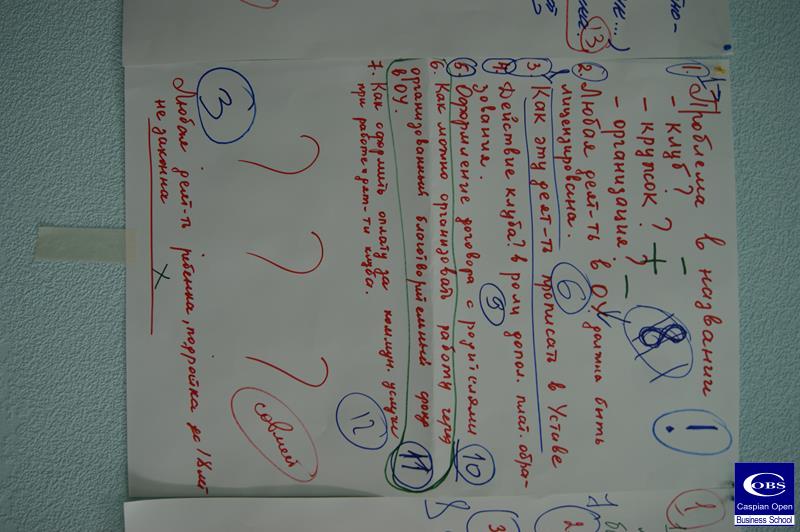 1. Проблема в названии !
- клуб? -
- кружок? +
- организация? -
8
2. Любая деят-ть в ОУ должна быть
лицензирована.
6
3. Как эту деят-ть прописать в Уставе
4. Действие клуба? в роли допол. плат. обра-
зования.
9
5. Оформление договора с родителями
10
6. Как можно организовать работу через
организованный благотворительный фонд
в ОУ.
11
7. Как оформить оплату за коммун. услуги
при работе и деят-ти клуба.
12
? ? ?
3
Любая деят-ть ребенка, подростка до 18 лет
не законна
13
1
2
3
COBS
Caspian Open
Business School